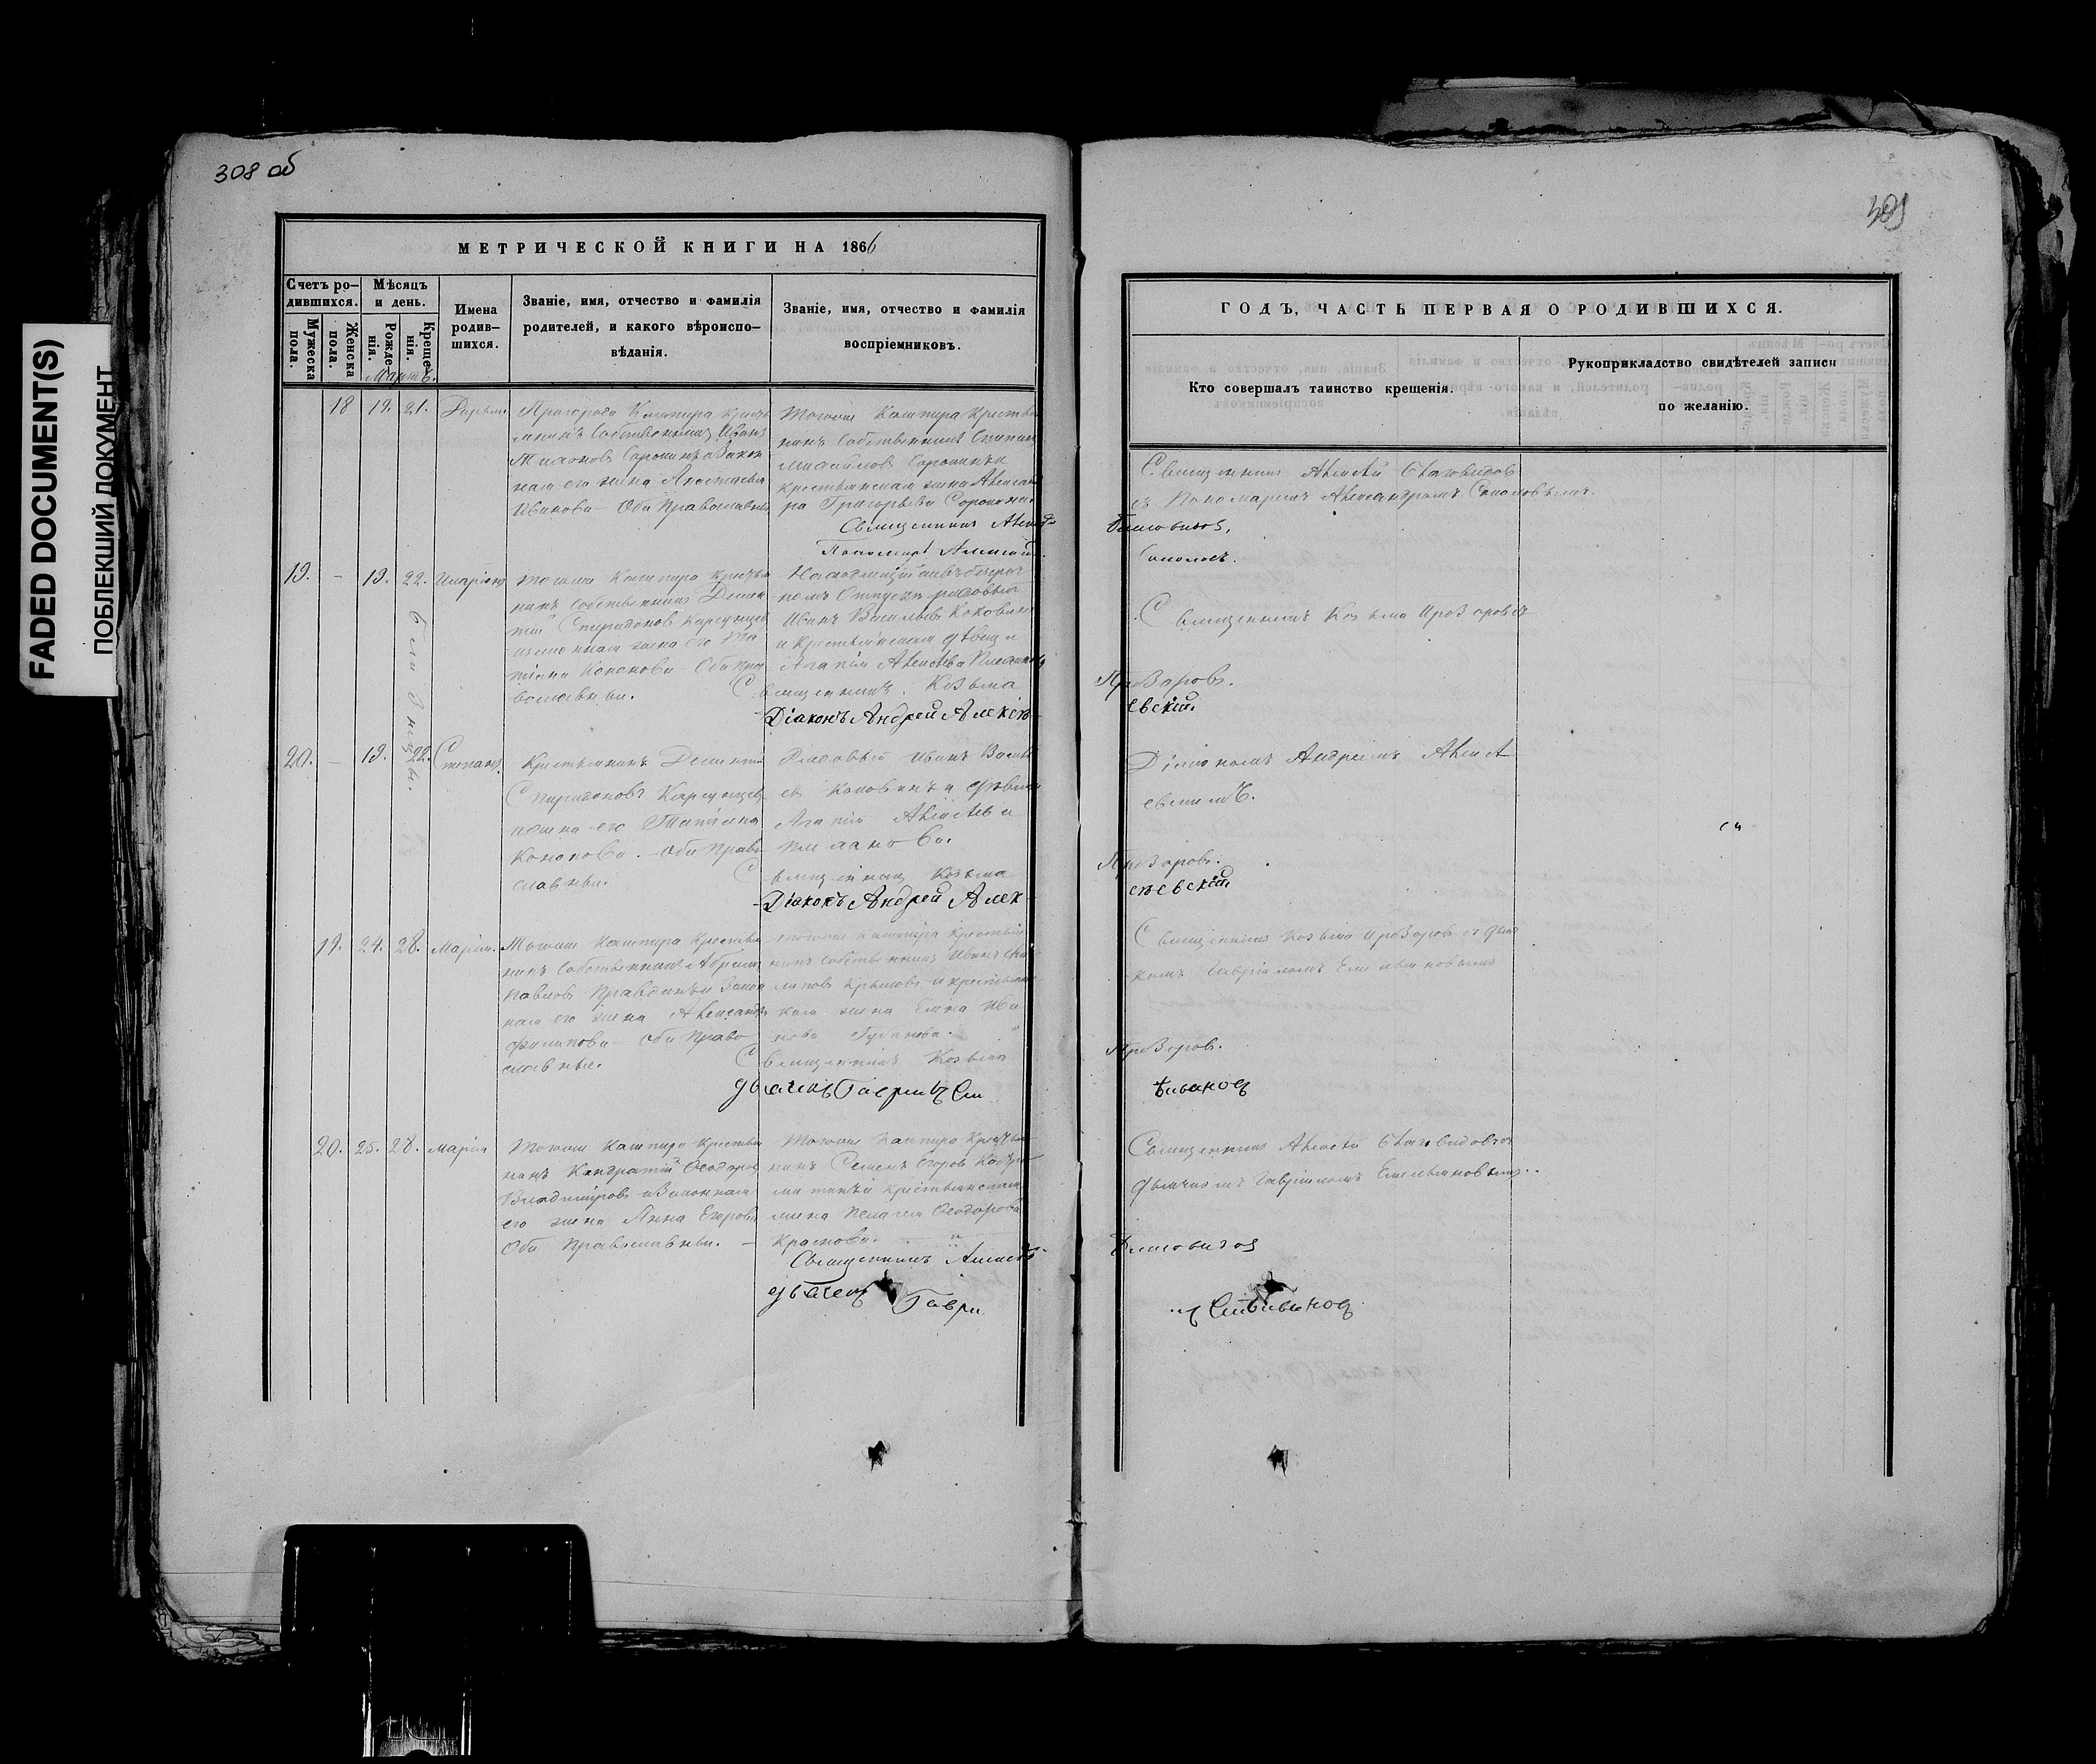 308 об
МЕТРИЧЕСКОЙ КНИГИ НА 1866
Счетъ ро-
дившихся.
Мужеска пола.
Женска пола.
Мѣсяцъ
и день.
Рожденія.
Крещенія.
Мартъ.
Имена
родив-
шихся.
Званіе, имя, отчество и фамилія
родителей, и какого вѣроиспо-
вѣданія.
Званіе, имя, отчество и фамилія
воспріемниковъ.
18 19. 21. Дарья
Пригорода Кашпира кресть
янинъ собственникъ Иванъ
Сорокинъ и закон
ная его жена Анастасья
Иванова Оба православные
Тогоже Кашпира крестья
нинъ собственникъ Степанъ
Михайловъ Сорокинъ и
крестьянская жена Александ
ра Григорьева Сорокина.
Священникъ Алексѣй
Пономарь
19. - 19. 22. Иларіонъ
близнецы.
Тогоже Кашпира крестья
нинъ собственникъ Демен
тій Спиридоновъ Карсунцевъ
и законная жена его Та
тіана Кононова Оба пра
вославные.
Находящійся въ безсроч
номъ отпуску рядовый
Иванъ Васильевъ Коковинъ
и крестьянская дѣвица
Агапія Алексѣева
Священникъ Козьма
Діаконъ Андрей Алексѣ
20. - 19. 22. Степанъ.
Крестьянинъ Дементій
Спиридоновъ Карсунцевъ
и жена его Татіана
Кононова. - Оба право
славные.
Рядовый Иванъ Василь
евъ Коковинъ и дѣвица
Агапія Алексѣева
Священникъ Козьма
Діаконъ Андрей Алек
19. 24. 28. Марія.
Тогоже Кашпира крестья
нинъ собственникъ Абрамъ
Павловъ Правдинъ и закон
ная его жена Александра
Филипова Оба право
славные.
Тогоже Кашпира крестья
нинъ собственникъ Иванъ
Крыловъ и крестьянс
кая жена Елена Ива
нова Губанова.
Священникъ Козьма
дьячекъ Гавриилъ Ем
20. 25. 28. Марія
Тогоже Кашпира крестья
нинъ Кондратій Ѳеодоровъ
Владиміровъ и законная
его жена Анна Егорова
Оба православные. -
Тогоже Кашпира крестья
нинъ Семенъ Егоровъ
и крестьянская
жена Пелагея Ѳеодорова
Краснова.
Священникъ Алексѣй
дьячекъ Гаври
309
ГОДЪ, ЧАСТЬ ПЕРВАЯ О РОДИВШИХСЯ.
Кто совершалъ таинство крещенія.
Рукоприкладство свидѣтелей записи
по желанію.
Священникъ Алексѣй Благовидовъ
съ пономаремъ Александромъ Соколовымъ.
Благовидовъ,
Соколовъ.
Священникъ Козьма Прозоровъ
Прозоровъ.
евскій.
Діакономъ Андреемъ Алексѣ
евскимъ.
Прозоровъ.
сѣевскій.
Священникъ Козьма Прозоровъ съ дьяч
комъ Гавріиломъ Емельяновымъ
Прозоровъ.
ельяновъ
Священникъ Алексѣй Благовидовъ съ
дьячкомъ Гавріиломъ Емельяновымъ.
Благовидовъ
илъ Емельяновъ
FADED DOCUMENT(S)
ПОБЛЕКШИЙ ДОКУМЕНТ